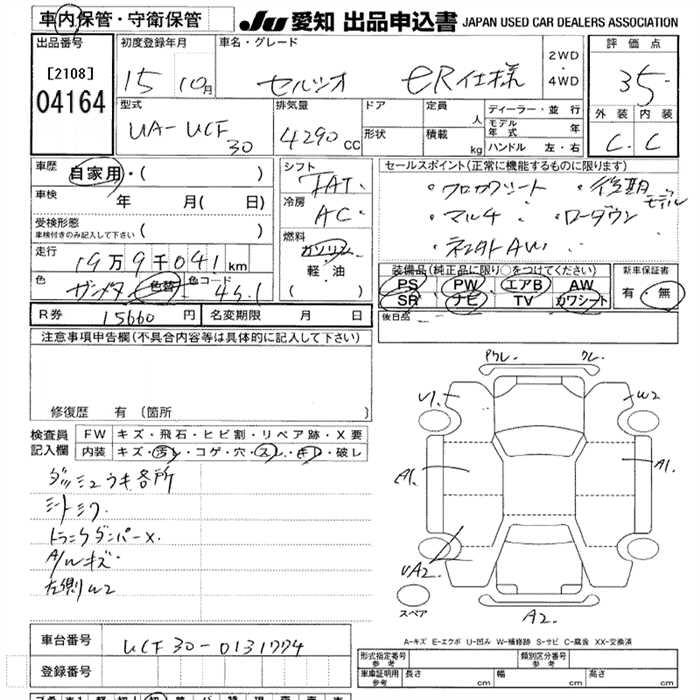 車内保管・守衛保管
JU 愛知 出品申込書 JAPAN USED CAR DEALERS ASSOCIATION
出品番号
[2108]
04164
初度登録年月
15 10月
車名・グレード
セルシオ eR仕様
2WD
4WD
評価点
3.5
外装 内装
C C
型式
UA-UCF30
排気量
4290cc
ドア
形状
定員 人
積載 kg
ディーラー・並行
モデル年式 年
ハンドル 左・右
車歴
自家用・( )
車検
年 月( 日)
受検形態
車検付きのみ記入して下さい ( )
走行
19万9千041km
色
色替
色コード
45.1
シフト
FAT
冷房
AC
燃料
ガソリン
軽・油
( )
セールスポイント(正常に機能するものに限ります)
・クロカワシート ・後期モデル
・マルチ ・ローダウン
装備品(純正品に限り○をつけてください)
PS PW エアB AW
SR ナビ TV カワシート
新車保証書
有・無
後日品
R券 15660円
名変期限 月 日
注意事項申告欄(不具合内容等は具体的に記入して下さい)
修復歴 有〔箇所 〕
検査員記入欄
FW キズ・飛石・ヒビ割・リペア跡・X要
内装 キズ・汚レ・コゲ・穴・スレ・キレ・破レ
ダッシュウキ各所
シートシワ
トランクダンパーX.
A/Wキズ
左側W2
ワレ.
U1.
W2
A1.
A1.
UA2.
A2.
スペア
A-キズ E-エクボ U-凹み W-補修跡 S-サビ C-腐食 XX-交換済
車台番号 UCF30-0131774
登録番号
形式指定番号 参考
類別区分番号 参考
車庫証明用 参考
長さ cm
幅 cm
高さ cm